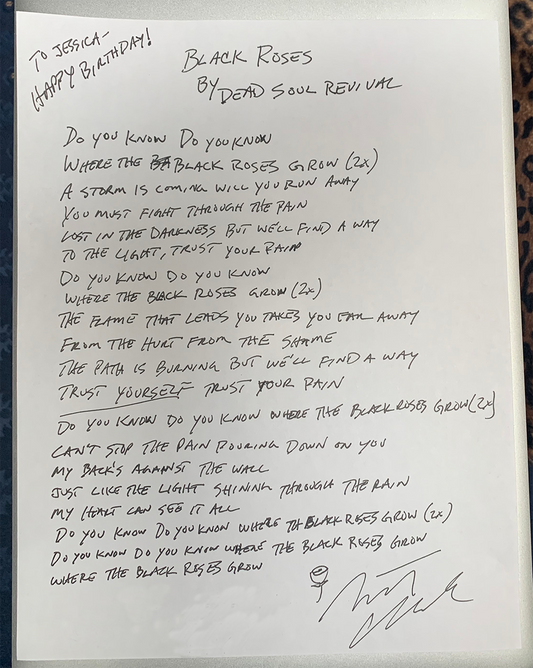 TO JESSICA-
HAPPY BIRTHDAY!
BLACK ROSES
BY DEAD SOUL REVIVAL
DO YOU KNOW DO YOU KNOW
WHERE THE BLACK ROSES GROW (2x)
A STORM IS COMING WILL YOU RUN AWAY
YOU MUST FIGHT THROUGH THE PAIN
LOST IN THE DARKNESS BUT WE'LL FIND A WAY
TO THE LIGHT, TRUST YOUR PAIN
DO YOU KNOW DO YOU KNOW
WHERE THE BLACK ROSES GROW (2x)
THE FLAME THAT LEADS YOU TAKES YOU FAR AWAY
FROM THE HURT FROM THE SHAME
THE PATH IS BURNING BUT WE'LL FIND A WAY
TRUST YOURSELF TRUST YOUR PAIN
DO YOU KNOW DO YOU KNOW WHERE THE BLACK ROSES GROW (2x)
CAN'T STOP THE PAIN POURING DOWN ON YOU
MY BACK'S AGAINST THE WALL
JUST LIKE THE LIGHT SHINING THROUGH THE RAIN
MY HEART CAN SEE IT ALL
DO YOU KNOW DO YOU KNOW WHERE THE BLACK ROSES GROW (2x)
DO YOU KNOW DO YOU KNOW WHERE THE BLACK ROSES GROW
WHERE THE BLACK ROSES GROW